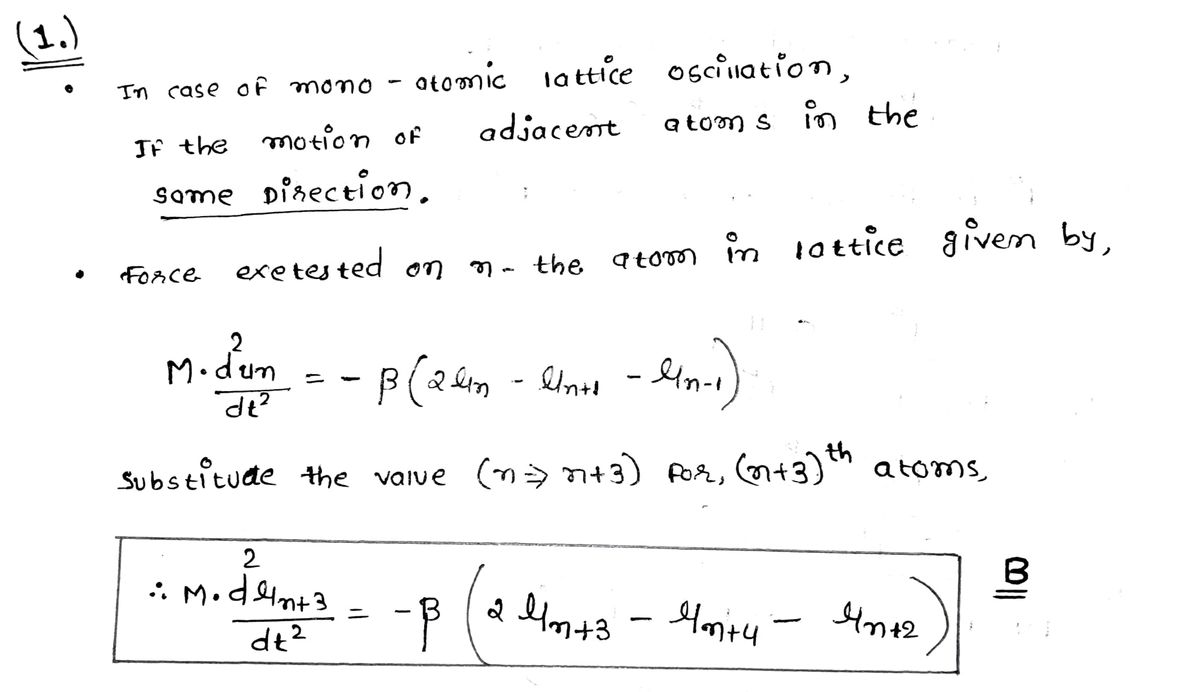 (1.)
• In case of mono - atomic lattice oscillation,
If the motion of adjacent atoms in the
same Direction.
• Force exetested on n - the atom in lattice given by,
M·d²un/dt² = - β(2un - un+1 - un-1)
Substitude the value (n ⇒ n+3) For, (n+3)th atoms,
∴ M·d²un+3/dt² = -β (2un+3 - un+4 - un+2) B